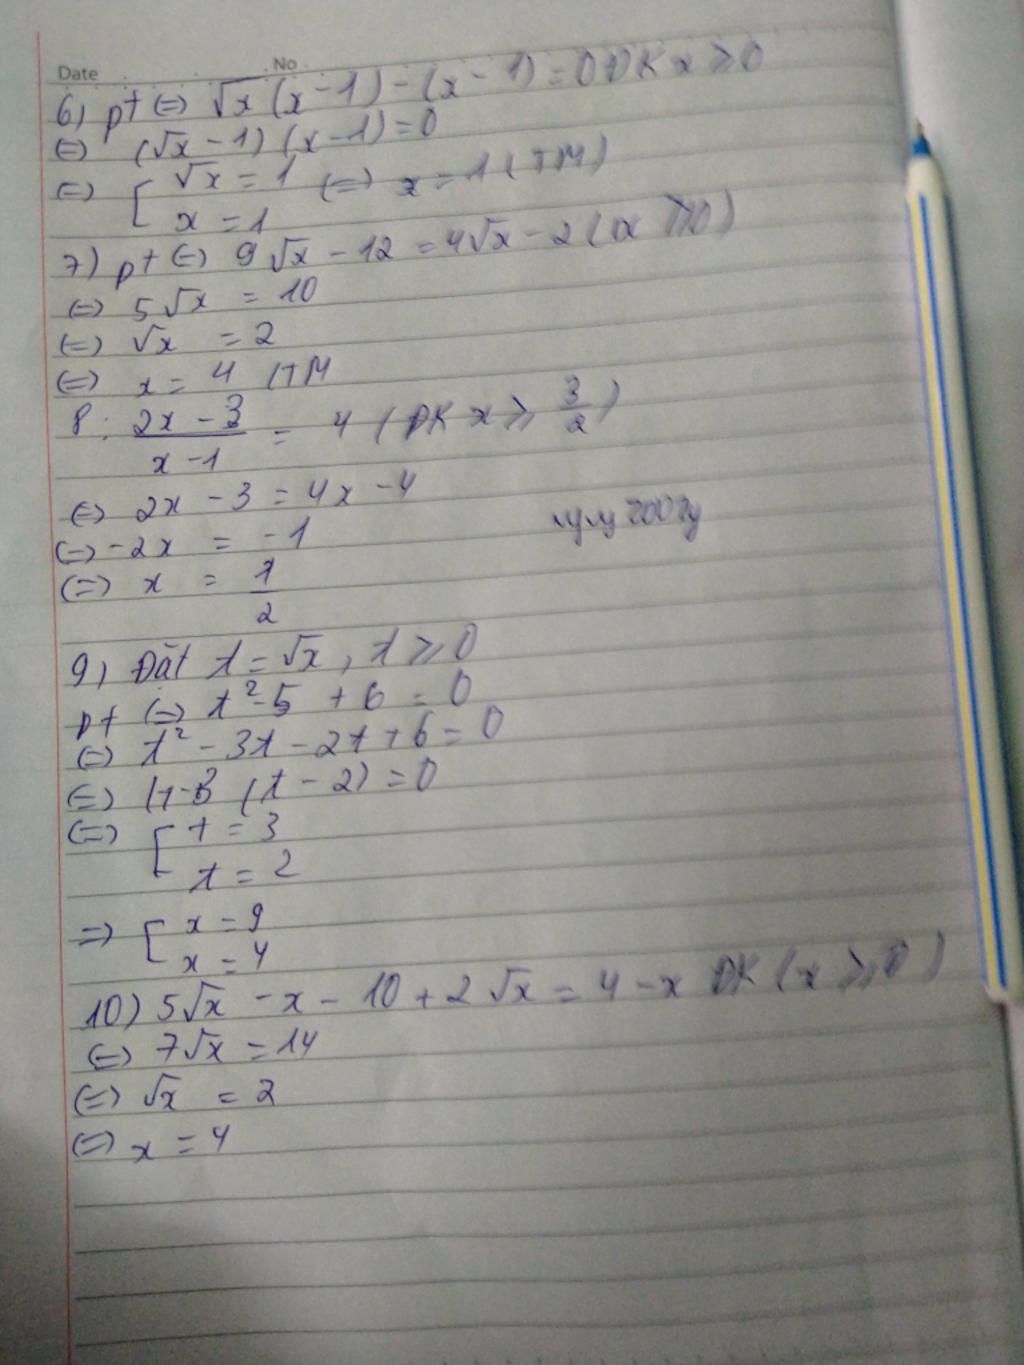 Date No
6) pt (=) √x (x - 1) - (x - 1) = 0 ĐK x ≥ 0
(=) (√x - 1) (x - 1) = 0
(=) [ √x = 1 (=) x = 1 (TM)
x = 1
7) pt (=) 9√x - 12 = 4√x - 2 (x ≥ 0)
(=) 5√x = 10
(=) √x = 2
(=) x = 4 (TM
8: (2x - 3)/(x - 1) = 4 (ĐK x ≥ 3/2)
(=) 2x - 3 = 4x - 4
(=) -2x = -1
(=) x = 1/2
9) Đặt t = √x, t ≥ 0
pt (=) t² - 5 + 6 = 0
(=) t² - 3t - 2t + 6 = 0
(=) (t - 3 (t - 2) = 0
(=) [ t = 3
t = 2
=> [ x = 9
x = 4
10) 5√x - x - 10 + 2√x = 4 - x ĐK (x ≥ 0)
(=) 7√x = 14
(=) √x = 2
(=) x = 4